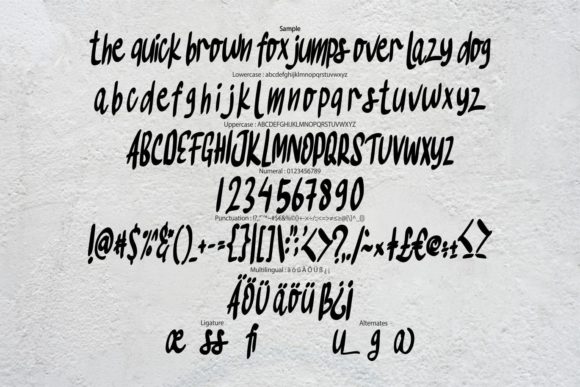 Sample
the quick brown fox jumps over lazy dog
Lowercase : abcdefghijklmnopqrstuvwxyz
abcdefghijklmnopqrstuvwxyz
Uppercase : ABCDEFGHIJKLMNOPQRSTUVWXYZ
ABCDEFGHIJKLMNOPQRSTUVWXYZ
Numeral : 0123456789
1234567890
!@#$%^&()_+-={}|[]\:;'<>?,./~×+£€©÷±≤≥
Multilingual : ä ö ü Ä Ö Ü ß ¿ ¡
ÄÖÜ äöü ß¿¡
Ligature Alternates
æ ss fi u g a